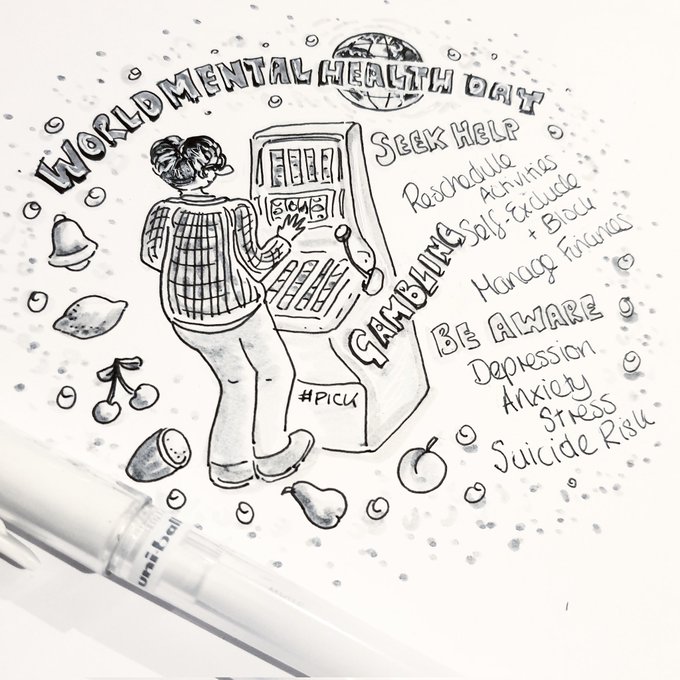 WORLD MENTAL HEALTH DAY
SEEK HELP
Reschedule
Activities
Self Exclude
+ Block
Manage Finances
GAMBLING
BE AWARE
Depression
Anxiety
Stress
Suicide Risk
#PICU
uni-ball